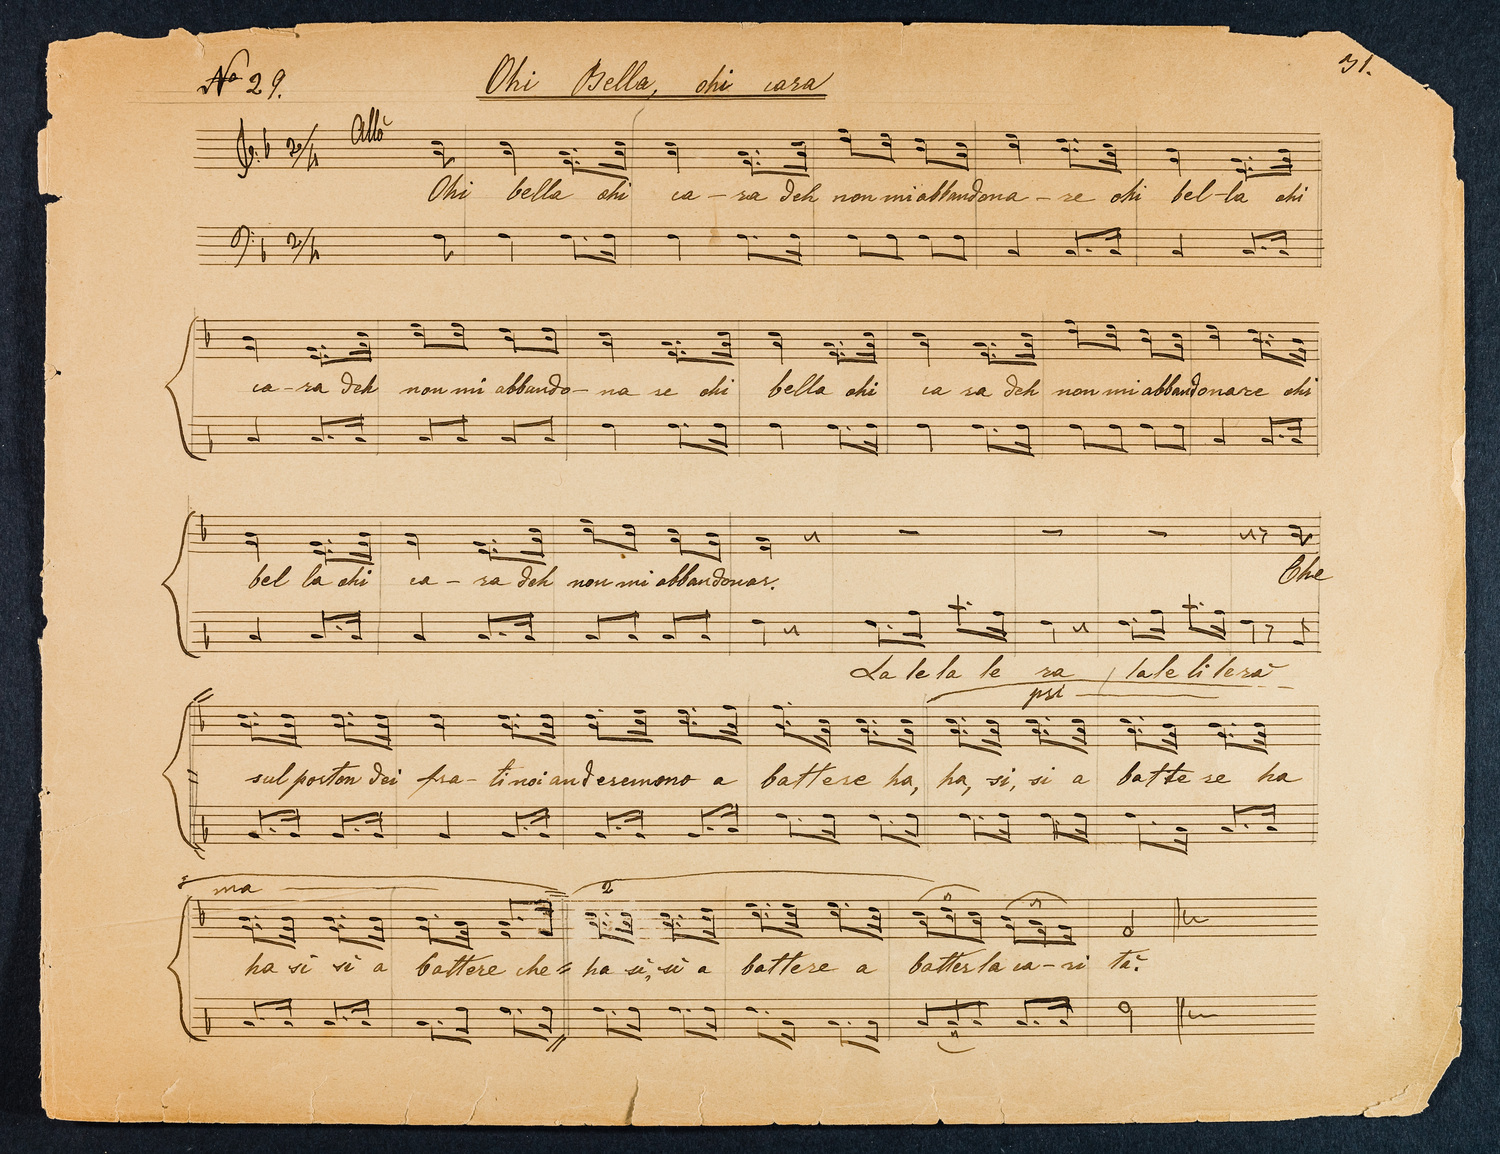 No 29. Ohi Bella, ohi cara 31.
Allo
2/4
Ohi bella ohi ca-ra deh non mi abbandona-re ohi bel-la ohi
2/4
ca-ra deh non mi abbando-na re ohi bella ohi ca ra deh non mi abbandonare ohi
bel la ohi ca-ra deh non mi abbandonar. Che
La le la le ra la le li lerà
pri
sul porton dei fra-ti noi anderemono a battere ha, ha, si, si a batte re ha
ma 2 3 3
ha si si a battere che ha si, si a battere a batter la ca-ri tà.
3